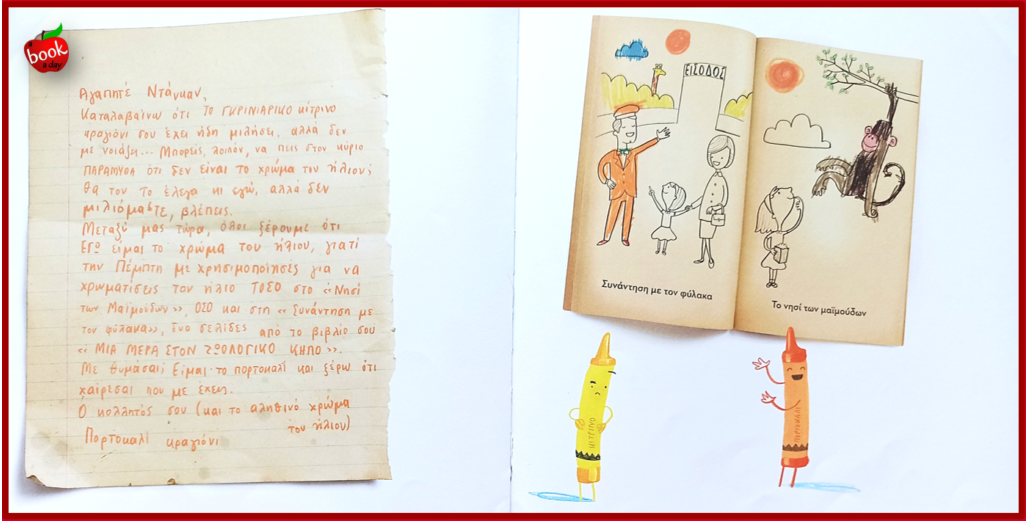 a
book
a day
Αγαπητέ Ντάνκαν,
Καταλαβαίνω ότι το ΓΚΡΙΝΙΑΡΙΚΟ κίτρινο
κραγιόνι σου έχει ήδη μιλήσει, αλλά δεν
με νοιάζει... Μπορείς, λοιπόν, να πεις στον κύριο
ΠΑΡΑΜΥΘΑ ότι δεν είναι το χρώμα του ήλιου;
Θα του το έλεγα κι εγώ, αλλά δεν
μιλιόμαστε, βλέπεις.
Μεταξύ μας τώρα, όλοι ξέρουμε ότι
ΕΓΩ είμαι το χρώμα του ήλιου, γιατί
την Πέμπτη με χρησιμοποίησες για να
χρωματίσεις τον ήλιο ΤΟΣΟ στο «Νησί
των Μαϊμούδων», ΟΣΟ και στη «Συνάντηση με
τον φύλακα», δυο σελίδες από το βιβλίο σου
«ΜΙΑ ΜΕΡΑ ΣΤΟΝ ΖΩΟΛΟΓΙΚΟ ΚΗΠΟ».
Με θυμάσαι; Είμαι το πορτοκαλί και ξέρω ότι
χαίρεσαι που με έχεις.
Ο κολλητός σου (και το αληθινό χρώμα
του ήλιου)
Πορτοκαλί κραγιόνι
ΕΙΣΟΔΟΣ
Συνάντηση με τον φύλακα
Το νησί των μαϊμούδων
ΚΙΤΡΙΝΟ
ΠΟΡΤΟΚΑΛΙ